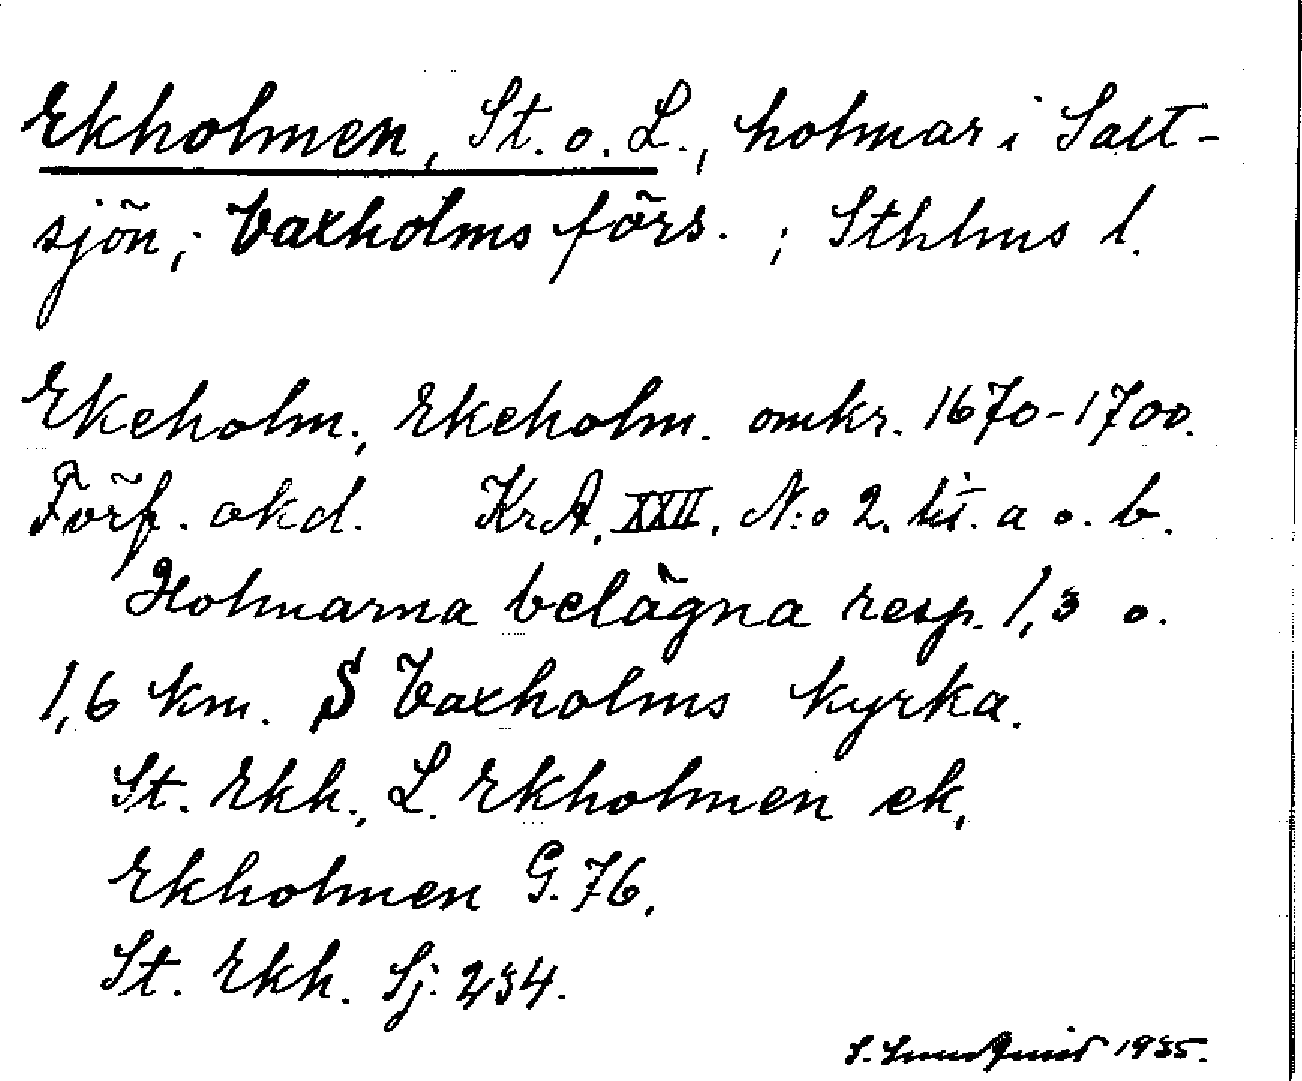 Ekholmen, St. o. L., holmar i Salt-
sjön; Vaxholms förs.; Sthlms l.
Ekeholm, Ekeholm. omkr. 1670-1700.
Förf. okd. KrA. XXII. N:o 2. lit. a o. b.
Holmarna belägna resp. 1,3 o.
1,6 km. S Vaxholms kyrka.
St. Ekh., L. Ekholmen ek,
Ekholmen G. 76.
St. Ekh. Sj: 234.
S. 1935.